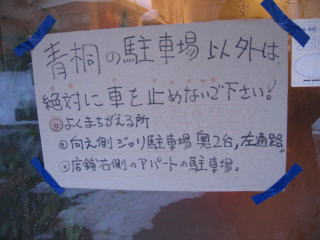 青桐の駐車場以外は
絶対に車を止めないで下さい!
◎よくまちがえる所
①向え側ジャリ駐車場奥2台,左通路。
②店舗右側のアパートの駐車場。